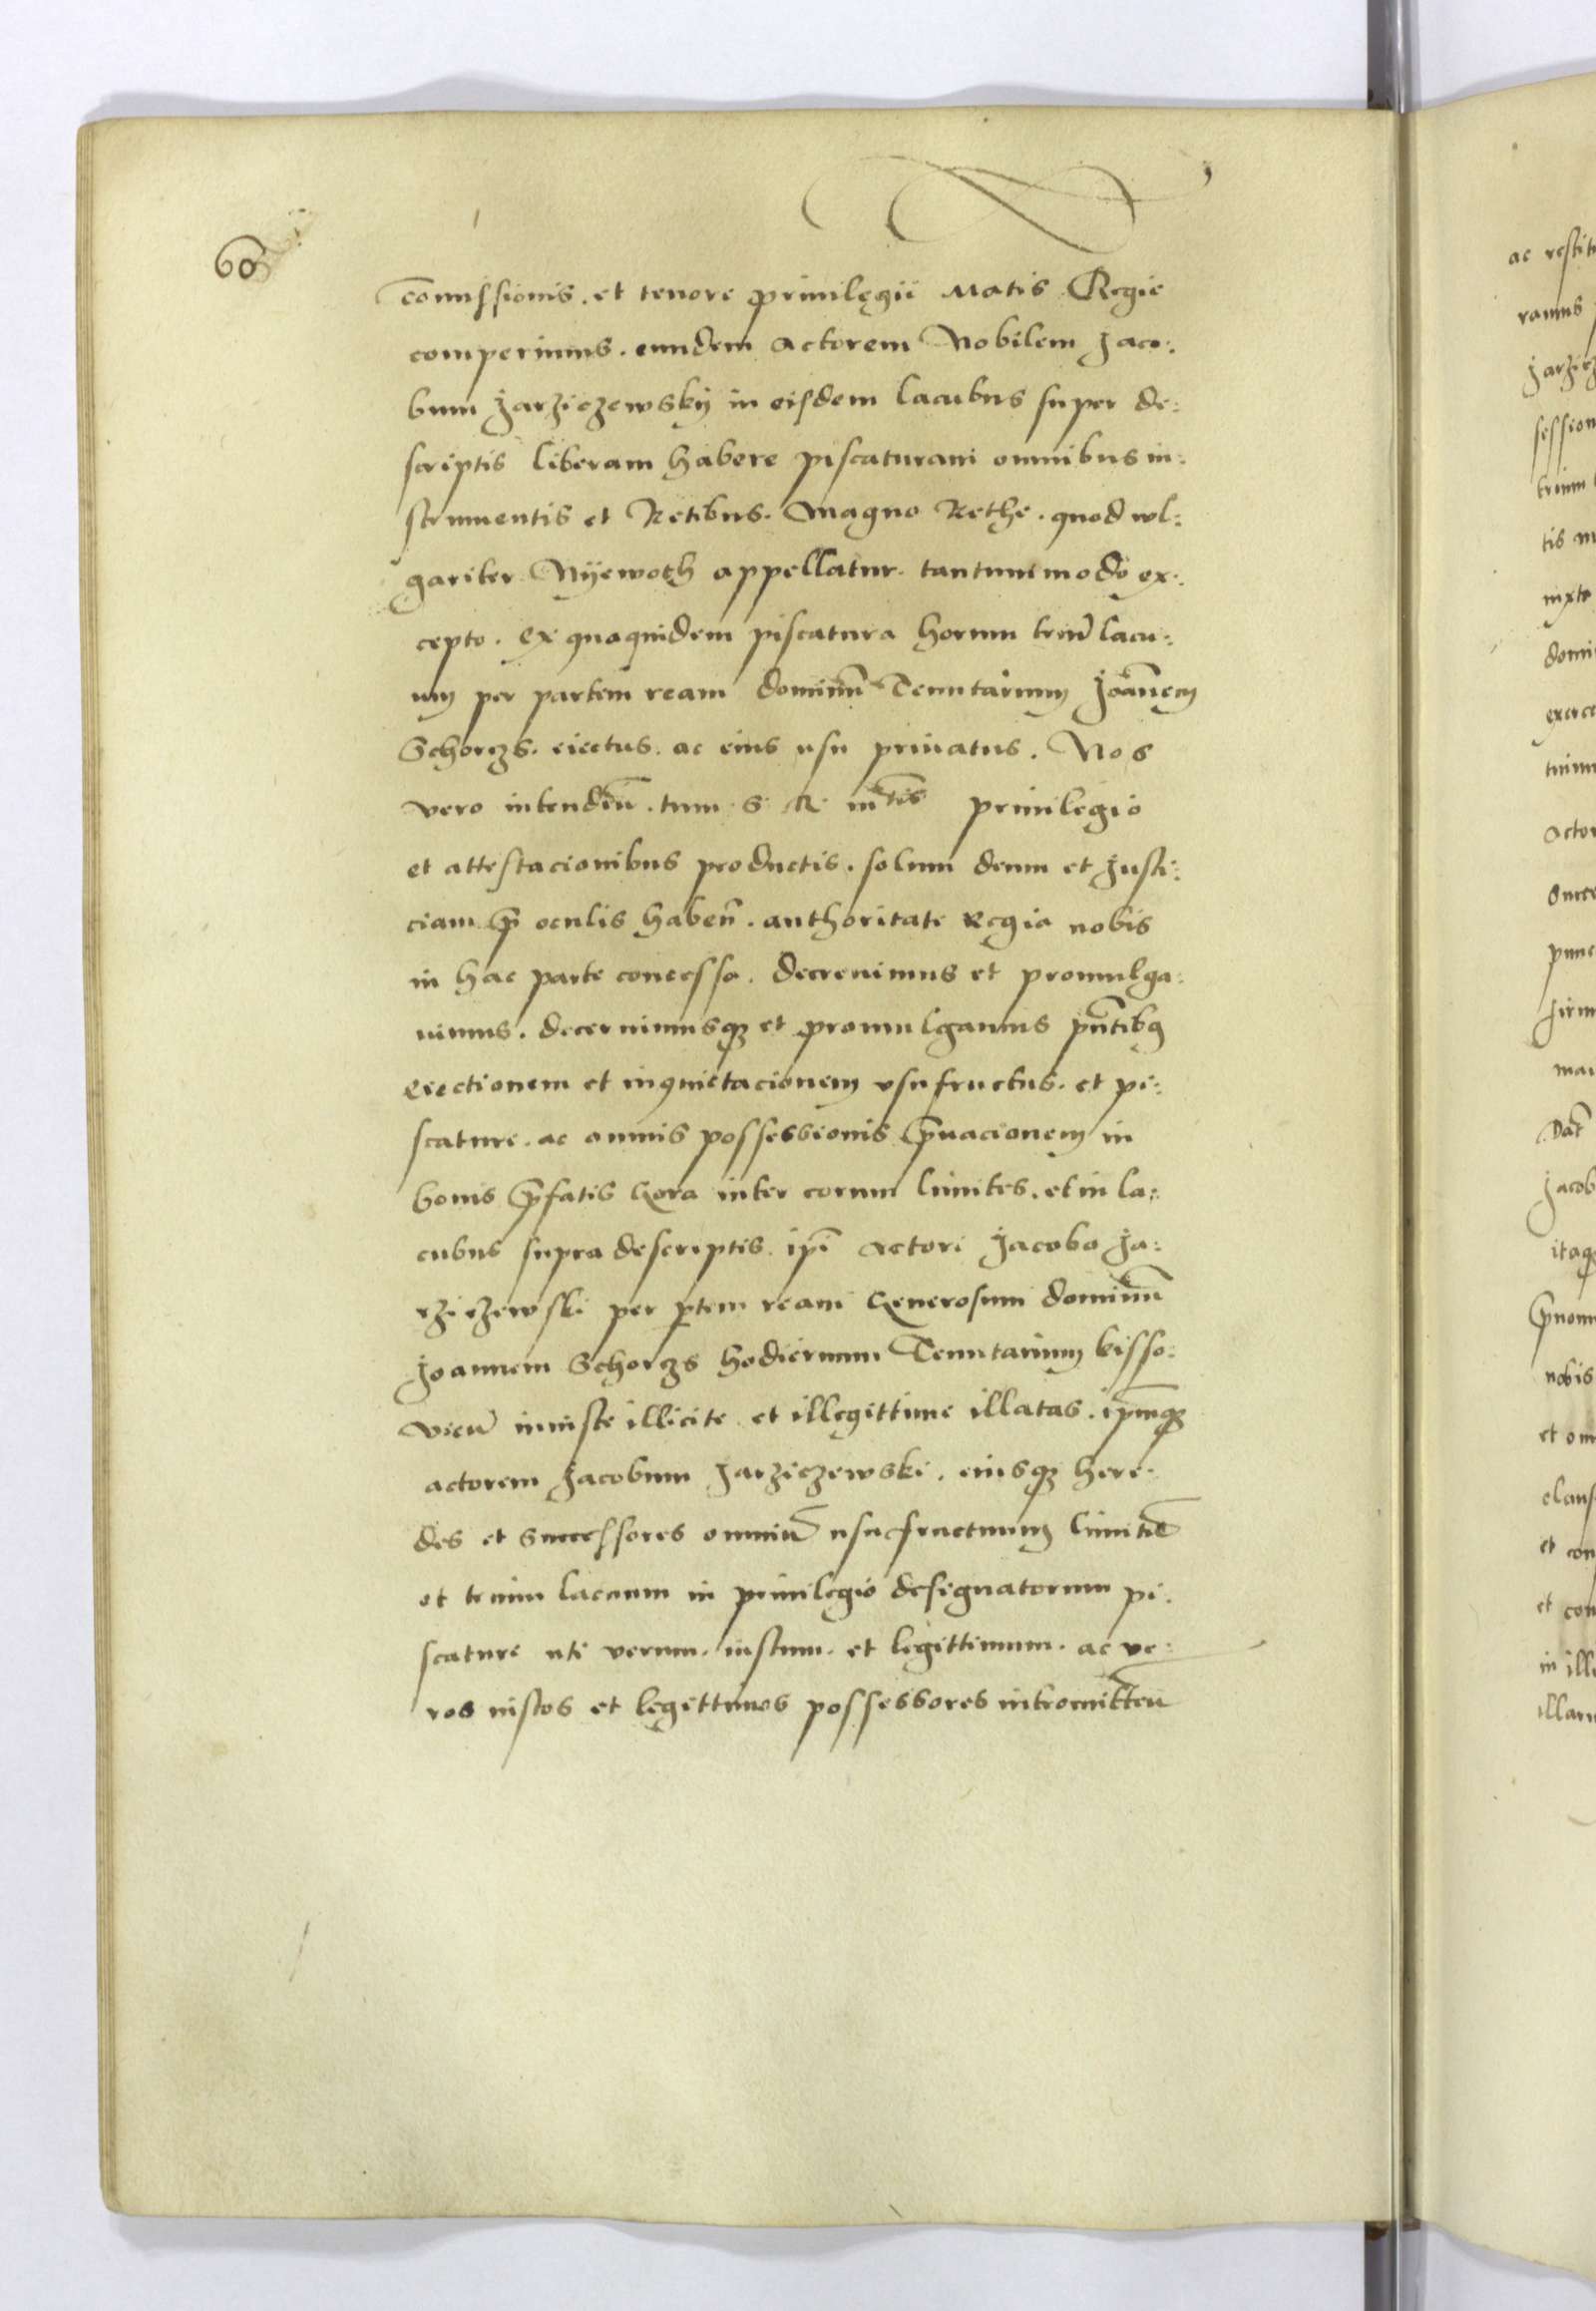 60
com̄issionis. et tenore privilegii Matis Regie
comperimus. eundem actorem Nobilem Jaco:
bum Jarziczewskÿ in eisdem lacubus super de:
scriptis liberam habere piscaturam omnibus in:
strumentis et Retibus. Magno Rethe. quod wl:
gariter Nÿewoth appellatur. tantummodo ex:
cepto. Ex qua quidem piscatura horum triū lacu:
um per partem ream dominū Tenutarium Joānem
Schorczs. eiectus. ac eius usu privatus. Nos
vero intendēn. tum S R mtis privilegio
et attestacionibus productis. solum deum et Justi:
ciam p̄ oculis habeñ. authoritate Regia nobis
in hac parte concessa. decrevimus et promulga:
vimus. decernimusqȝ et promulgamus pn̄tibꝰ
eiectionem et inquietacionem usufructus. et pi:
scature. ac omnis possessionis p̄vacionem in
bonis p̄fatis Gora inter eorum limites. et in la:
cubus supra descriptis. ip̄i actori Jacobo Ja:
rziczewski per ptem ream Generosum dominū
Joannem Schorczs hodiernum Tenutarium kisso:
vieñ iniuste illicite et illegittime illatas. ip̄mqȝ
actorem Jacobum Jarziczewski. eiusqȝ here:
des et successores omniū usufructuum limitū
et trium lacuum in privilegio designatorum pi:
scature uti verum. iustum. et legittimum. ac ve:
ros iustos et legittimos possessores intromitteñ
ac restit
ramus
Jarzicz
session
trium
tis
iuxta
domi
exerce
actor
succe
punc
firm
Dat
Jacob
itaqȝ
nobis
et om
claus
et con
et con
in ill
illar